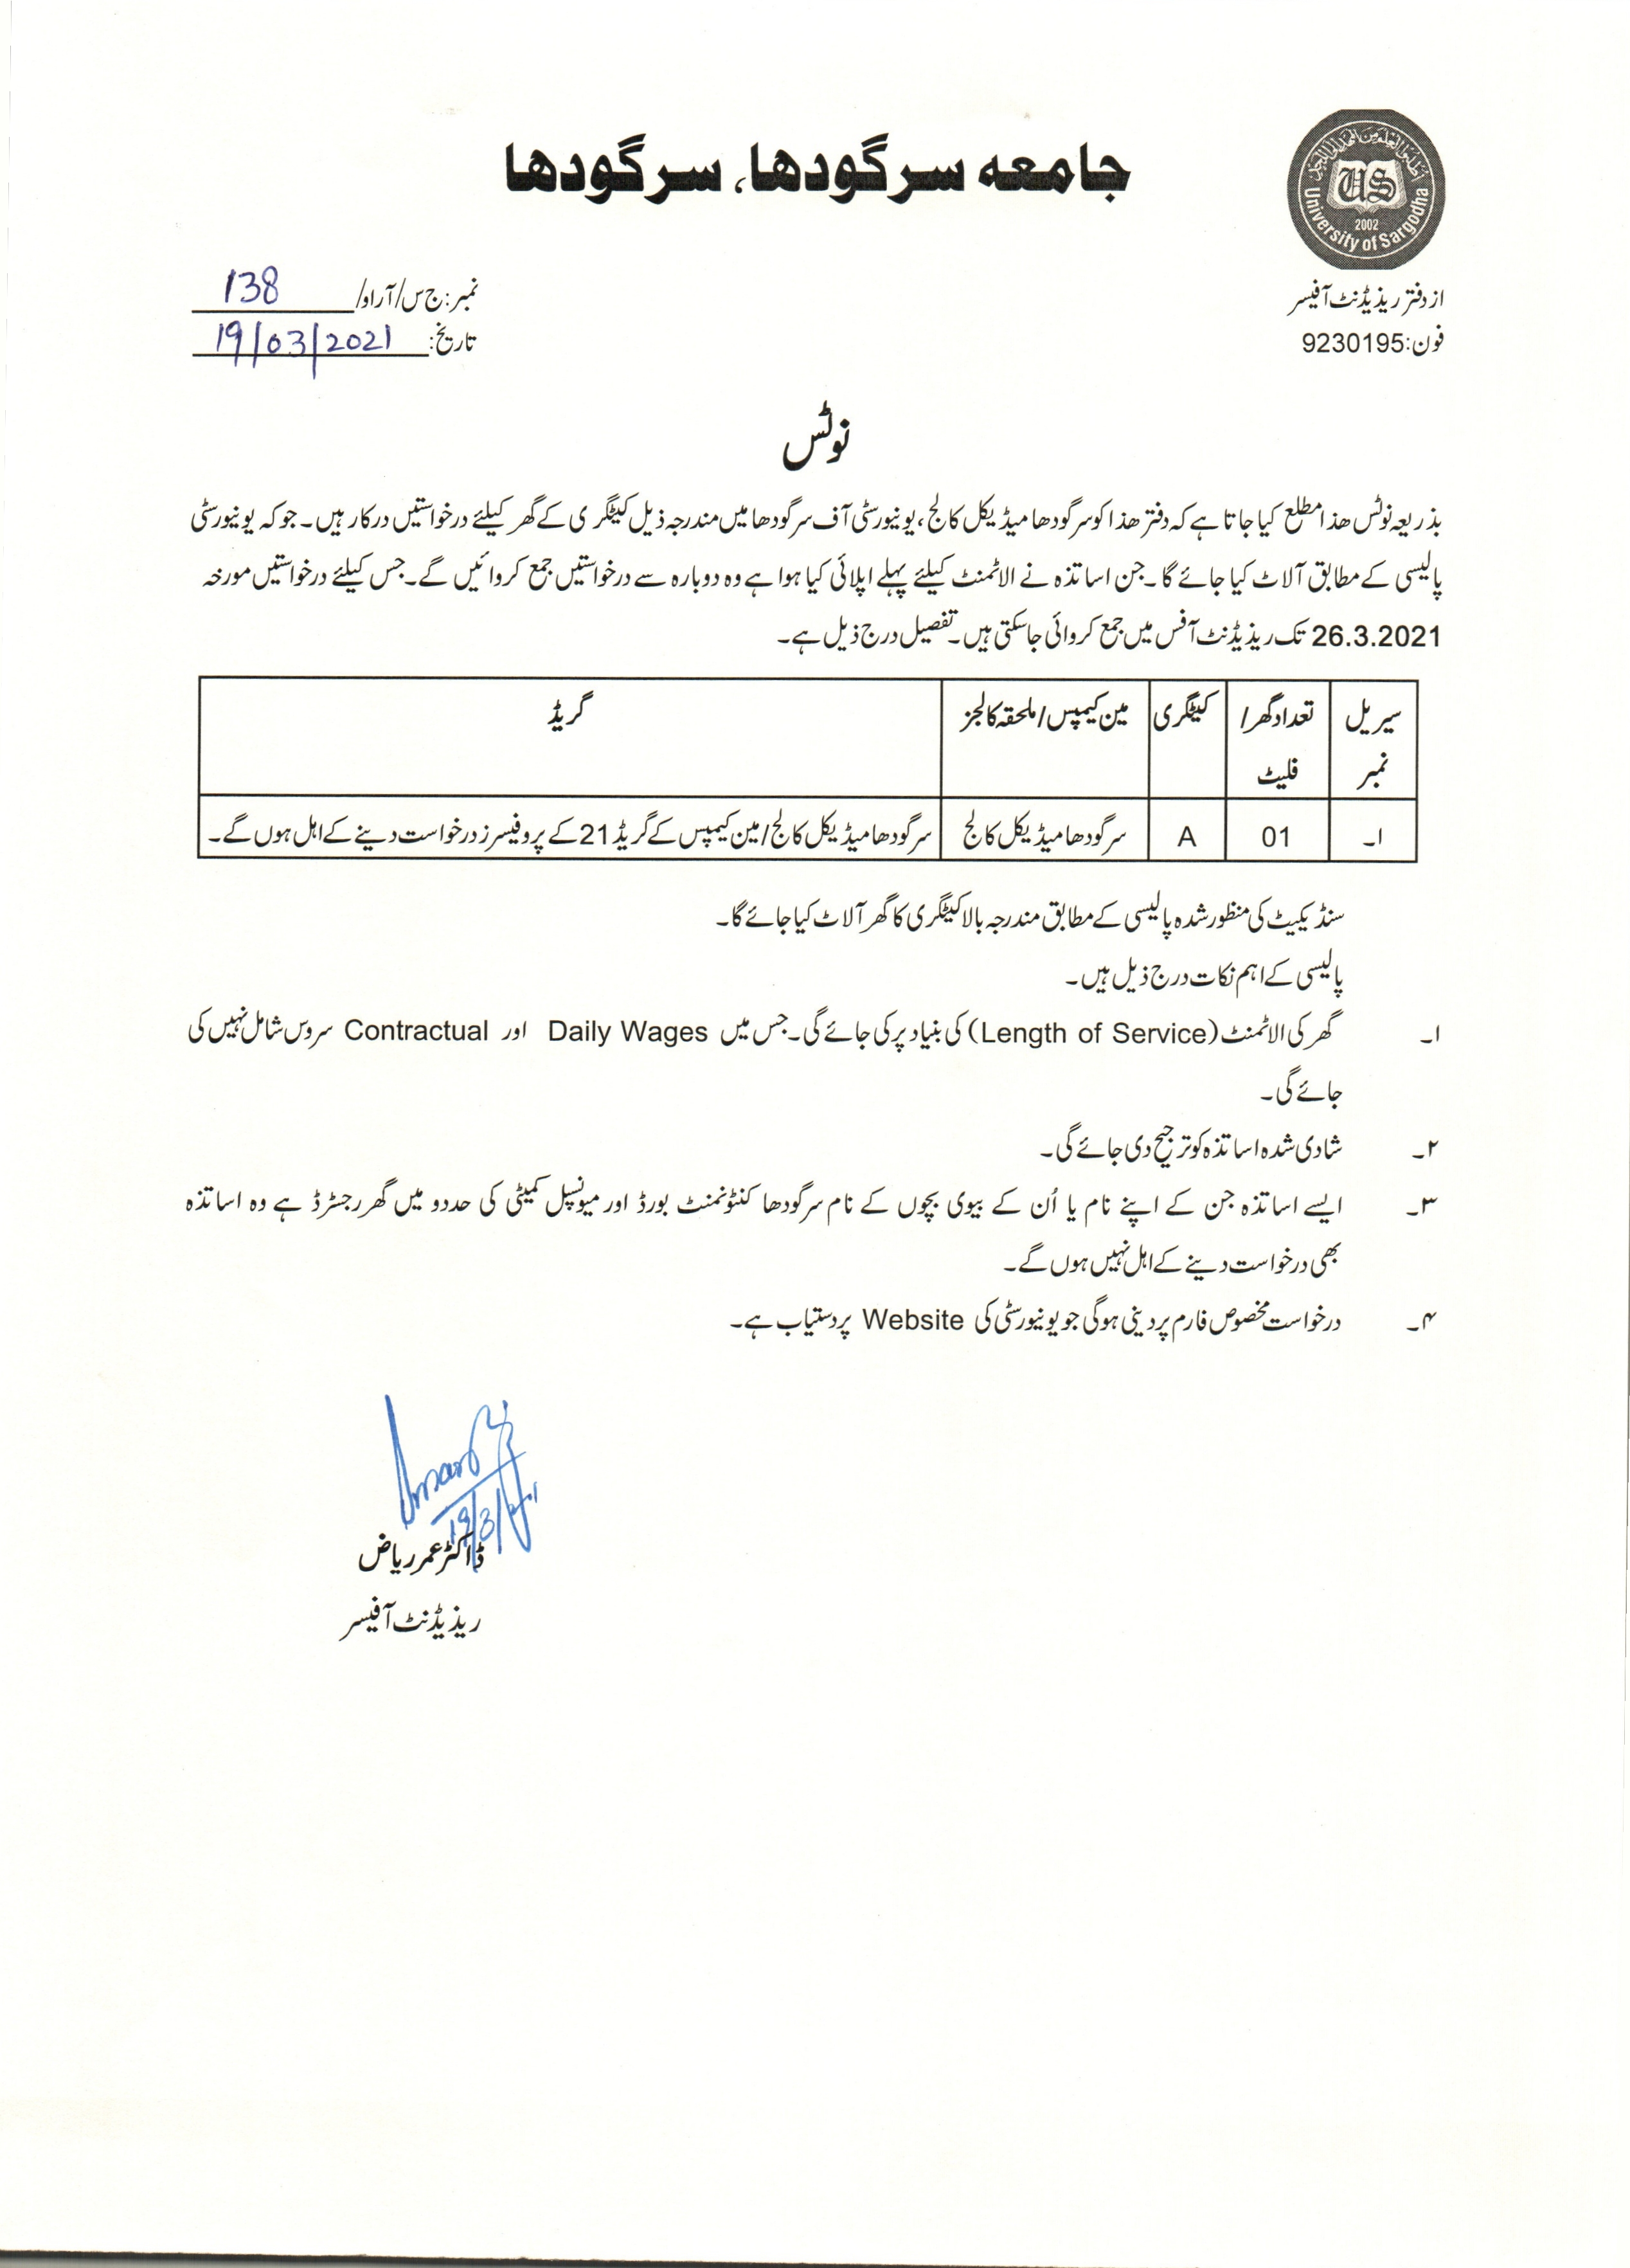 جامعہ سرگودھا، سرگودھا
US
2002
University of Sargodha
از دفتر ریذیڈنٹ آفیسر
فون:9230195
نمبر:ج س/آر او/ 138
تاریخ: 19/03/2021
نوٹس
بذریعہ نوٹس ھذا مطلع کیا جاتا ہے کہ دفتر ھذا کو سرگودھا میڈیکل کالج، یونیورسٹی آف سرگودھا میں مندرجہ ذیل کیٹگری کے گھر کیلئے درخواستیں درکار ہیں۔ جو کہ یونیورسٹی
پالیسی کے مطابق آلاٹ کیا جائے گا۔ جن اساتذہ نے الاٹمنٹ کیلئے پہلے اپلائی کیا ہوا ہے وہ دوبارہ سے درخواستیں جمع کروائیں گے۔ جس کیلئے درخواستیں مورخہ
26.3.2021 تک ریذیڈنٹ آفس میں جمع کروائی جاسکتی ہیں۔ تفصیل درج ذیل ہے۔
سیریل نمبر | تعداد گھر/ فلیٹ | کیٹگری | مین کیمپس/ملحقہ کالجز | گریڈ
۱۔ | 01 | A | سرگودھا میڈیکل کالج | سرگودھا میڈیکل کالج/مین کیمپس کے گریڈ 21 کے پروفیسرز درخواست دینے کے اہل ہوں گے۔
سنڈیکیٹ کی منظور شدہ پالیسی کے مطابق مندرجہ بالا کیٹگری کا گھر آلاٹ کیا جائے گا۔
پالیسی کے اہم نکات درج ذیل ہیں۔
۱۔ گھر کی الاٹمنٹ (Length of Service) کی بنیاد پر کی جائے گی۔ جس میں Daily Wages اور Contractual سروس شامل نہیں کی
جائے گی۔
۲۔ شادی شدہ اساتذہ کو ترجیح دی جائے گی۔
۳۔ ایسے اساتذہ جن کے اپنے نام یا اُن کے بیوی بچوں کے نام سرگودھا کنٹونمنٹ بورڈ اور میونسپل کمیٹی کی حددو میں گھر رجسٹرڈ ہے وہ اساتذہ
بھی درخواست دینے کے اہل نہیں ہوں گے۔
۴۔ درخواست مخصوص فارم پر دینی ہوگی جو یونیورسٹی کی Website پر دستیاب ہے۔
ڈاکٹر عمر ریاض
ریذیڈنٹ آفیسر